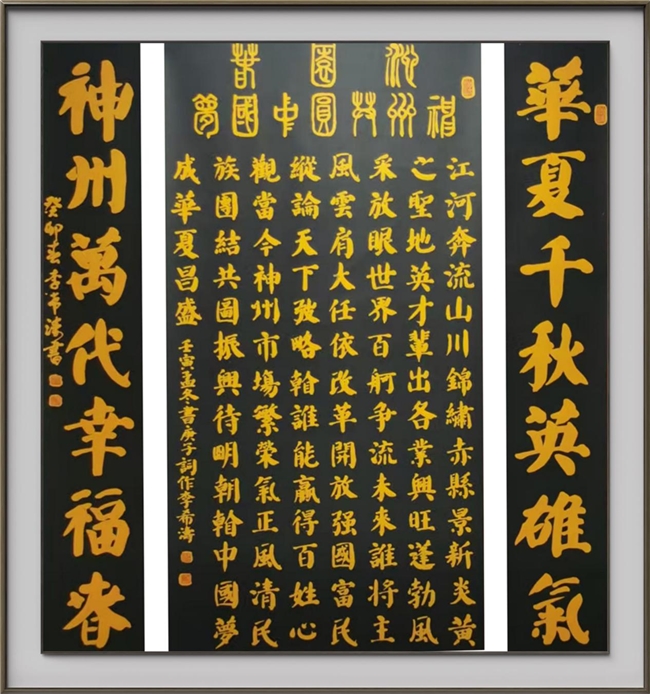 華夏千秋英雄氣
沁園春
神州共圓中國夢
江河奔流山川錦繡赤縣景新炎黃
之聖地英才輩出各業興旺蓬勃風
采放眼世界百舸爭流未來誰將主
風雲肩大任依改革開放强國富民
縱論天下弢略看誰能贏得百姓心
觀當今神州市場繁榮氣正風清民
族團結共圖振興待明朝看中國夢
成華夏昌盛
壬寅孟冬書庚子詞作李希濤
神州萬代幸福春
癸卯春李希濤書